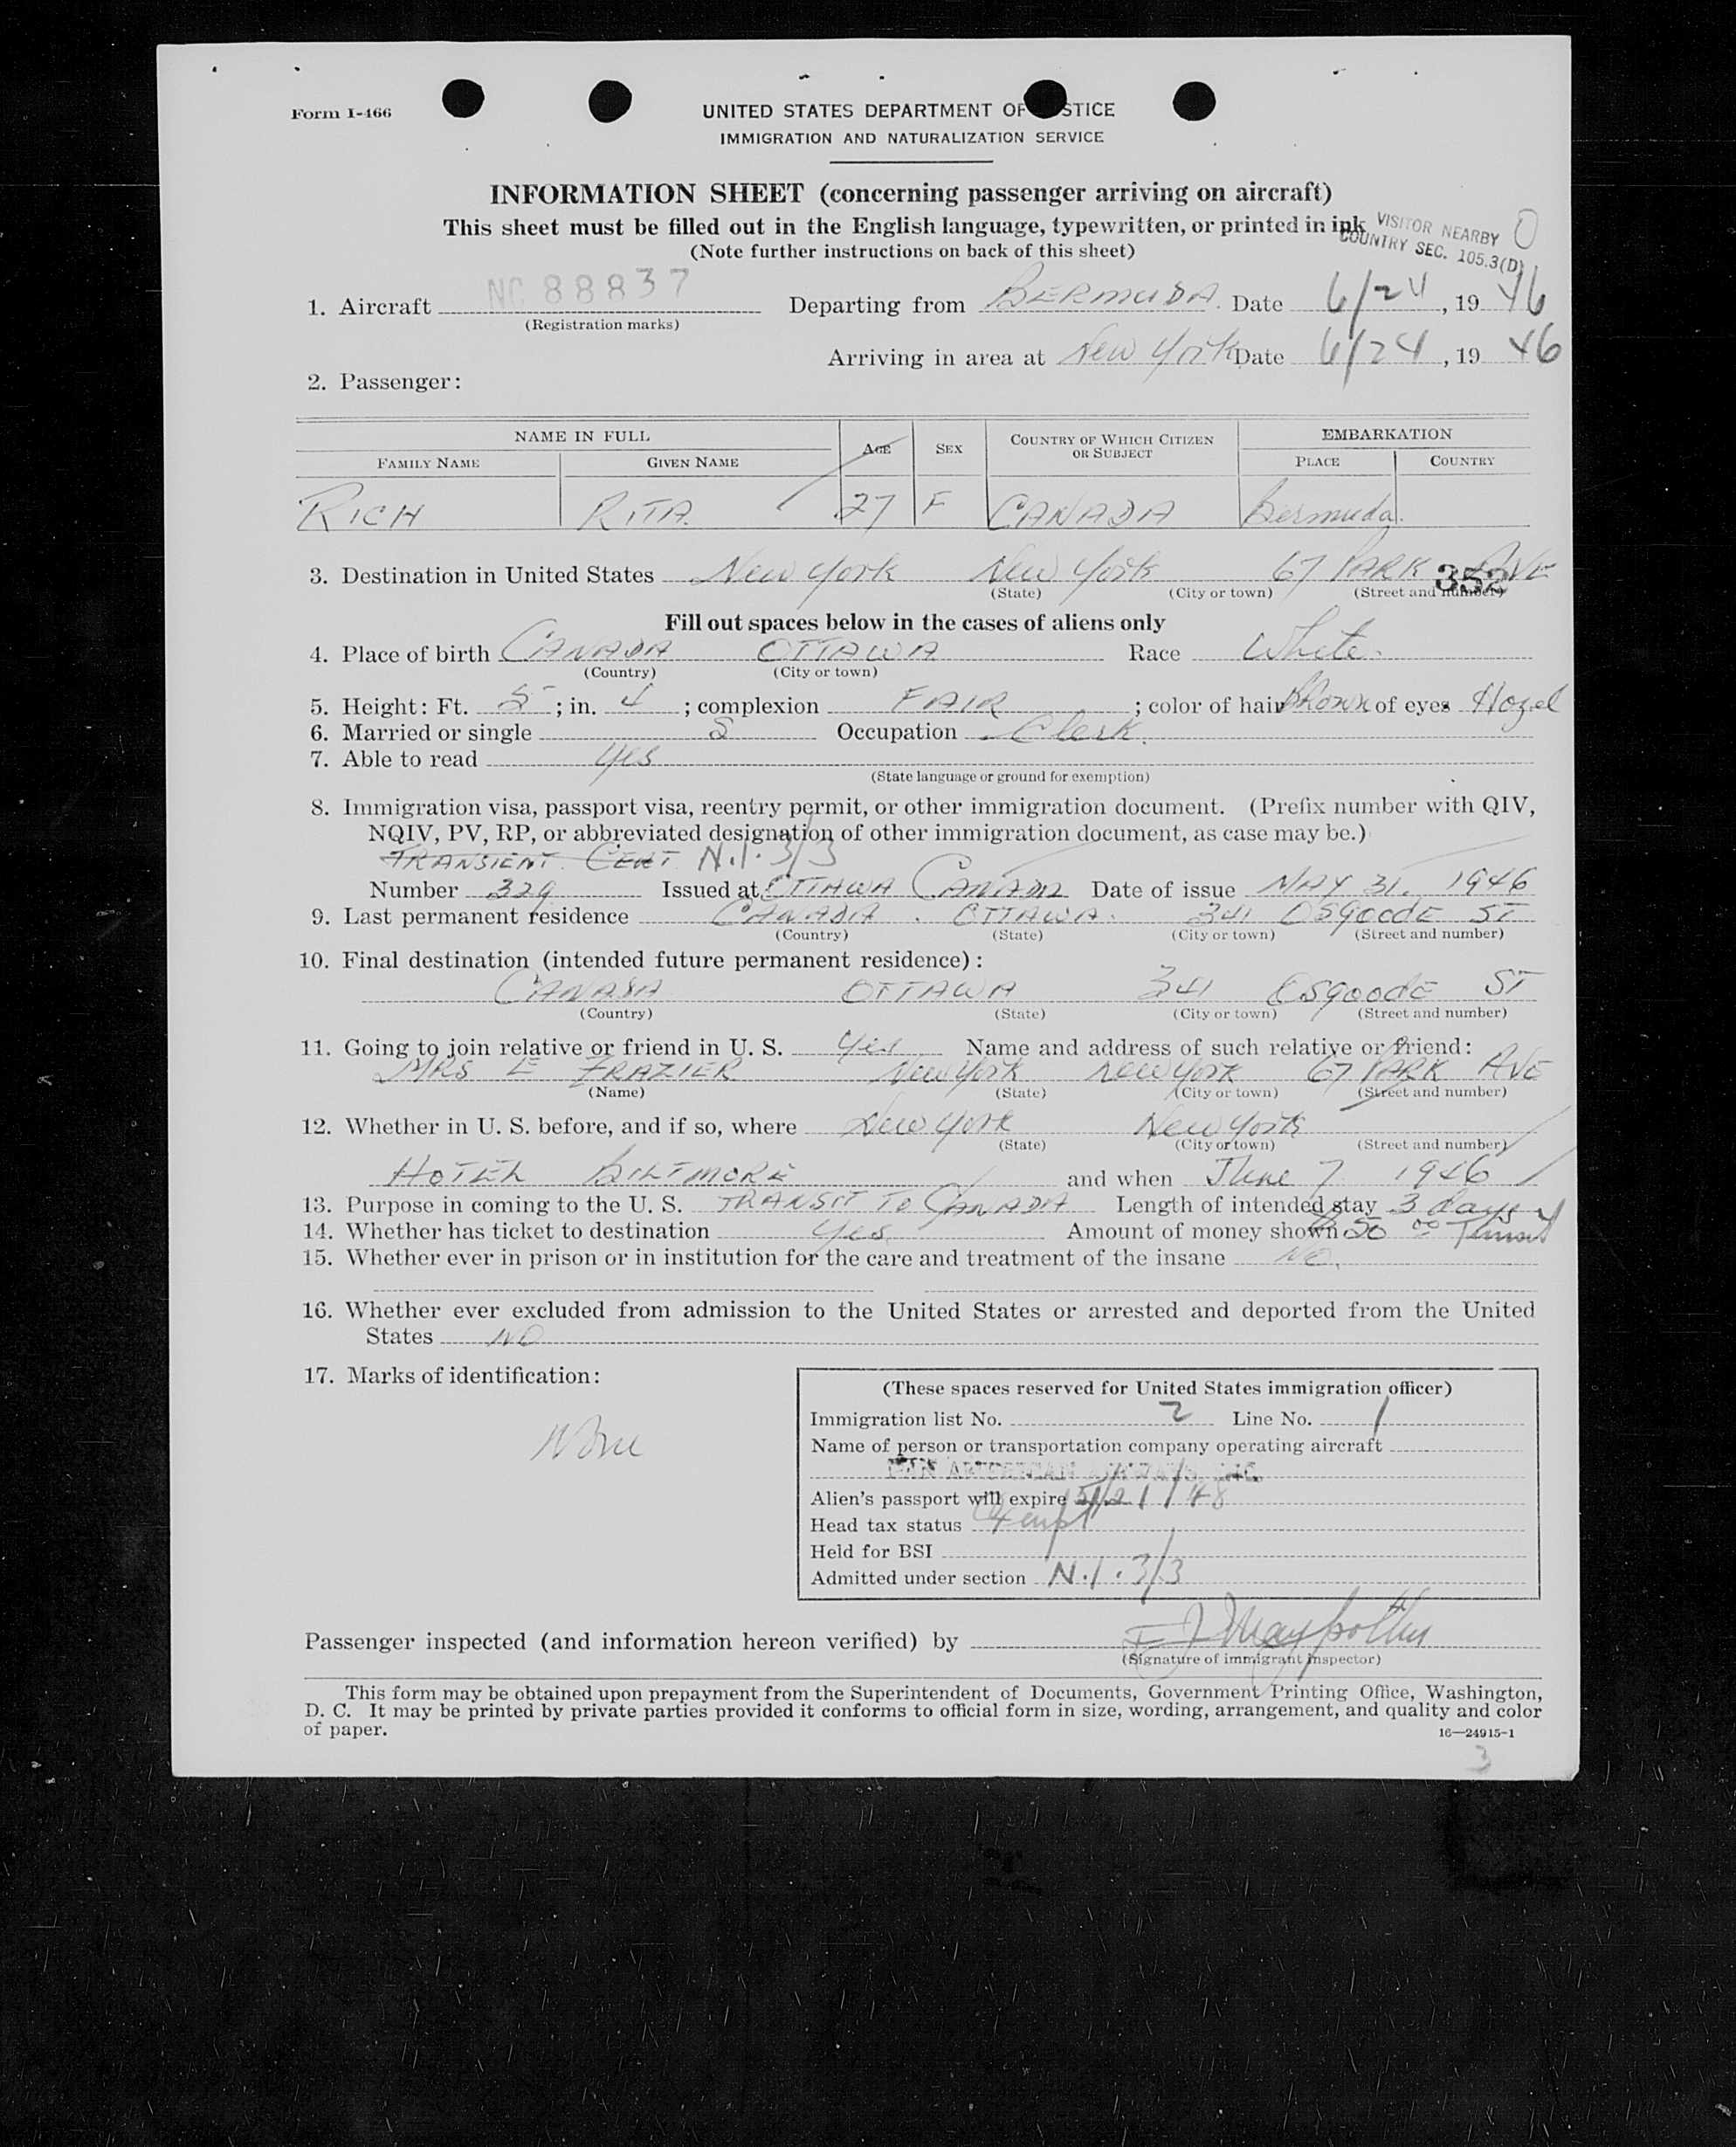 Form I-466
UNITED STATES DEPARTMENT OF STICE
IMMIGRATION AND NATURALIZATION SERVICE
INFORMATION SHEET (concerning passenger arriving on aircraft)
This sheet must be filled out in the English language, typewritten, or printed in ink
(Note further instructions on back of this sheet)
VISITOR NEARBY
COUNTRY SEC. 105.3(D)
1. Aircraft NC 88837 Departing from BERMUDA. Date 6/24, 1946
(Registration marks)
Arriving in area at New York Date 6/24, 1946
2. Passenger:
NAME IN FULL AGE SEX COUNTRY OF WHICH CITIZEN OR SUBJECT EMBARKATION
FAMILY NAME GIVEN NAME PLACE COUNTRY
RICH RITA 27 F CANADA Bermuda.
3. Destination in United States New York New York 67 PARK AVE
(State) (City or town) (Street and number)
352
Fill out spaces below in the cases of aliens only
4. Place of birth CANADA OTTAWA Race White.
(Country) (City or town)
5. Height: Ft. 5; in. 4; complexion FAIR; color of hair Brown of eyes Hazel
6. Married or single S Occupation Clerk.
7. Able to read yes
(State language or ground for exemption)
8. Immigration visa, passport visa, reentry permit, or other immigration document. (Prefix number with QIV,
NQIV, PV, RP, or abbreviated designation of other immigration document, as case may be.)
TRANSIENT CERT N.I. 3/3
Number 329 Issued at OTTAWA CANADA Date of issue MAY 31, 1946
9. Last permanent residence CANADA. OTTAWA. 341 OSgoodE ST
(Country) (State) (City or town) (Street and number)
10. Final destination (intended future permanent residence):
CANADA OTTAWA 341 OSgoodE ST
(Country) (State) (City or town) (Street and number)
11. Going to join relative or friend in U. S. Yes Name and address of such relative or friend:
MRS E FRAZIER New York New York 67 PARK AVE
(Name) (State) (City or town) (Street and number)
12. Whether in U. S. before, and if so, where New York New York
(State) (City or town) (Street and number)
HOTEL BILTMORE and when June 7 1946
13. Purpose in coming to the U. S. TRANSIT TO CANADA Length of intended stay 3 days
14. Whether has ticket to destination Yes Amount of money shown $50 00
15. Whether ever in prison or in institution for the care and treatment of the insane NO.
16. Whether ever excluded from admission to the United States or arrested and deported from the United
States NO
17. Marks of identification:
None
(These spaces reserved for United States immigration officer)
Immigration list No. 2 Line No. 1
Name of person or transportation company operating aircraft
PAN AMERICAN AIRWAYS, INC.
Alien's passport will expire 5/21/48
Head tax status Exempt
Held for BSI
Admitted under section N.I. 3/3
Passenger inspected (and information hereon verified) by
(Signature of immigrant inspector)
This form may be obtained upon prepayment from the Superintendent of Documents, Government Printing Office, Washington,
D. C. It may be printed by private parties provided it conforms to official form in size, wording, arrangement, and quality and color
of paper.
16—24915-1
3